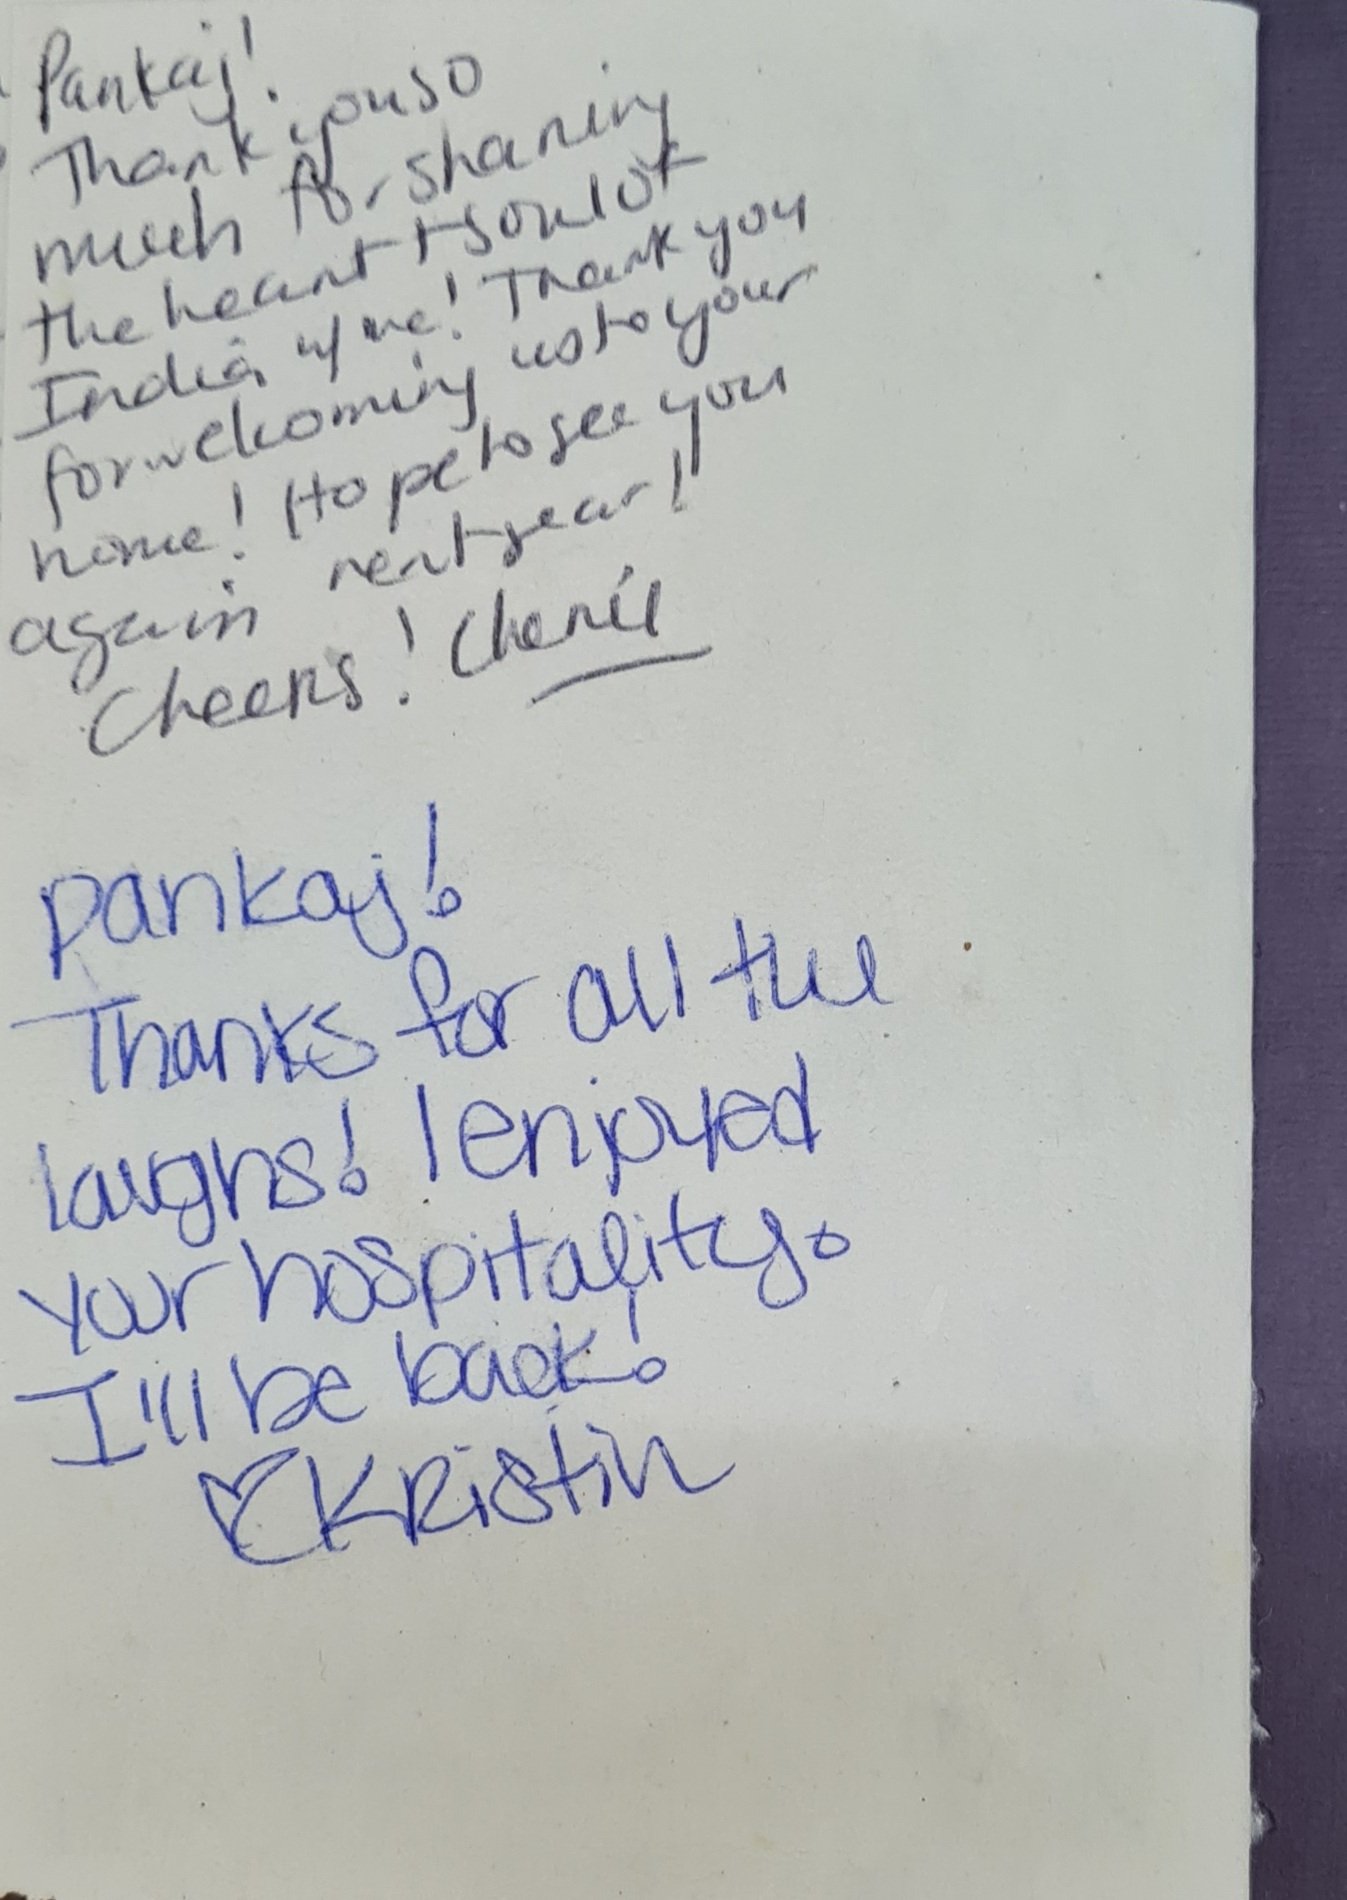 Pankaj!
Thank you so
much for sharing
the heart + soul of
India w/ me! Thank you
for welcoming us to your
home! Hope to see you
again next year!
Cheers!
Pankaj!
Thanks for all the
laughs! I enjoyed
your hospitality.
I'll be back!
♡ Kristin